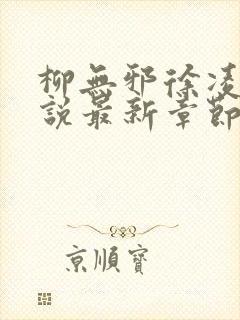 柳無邪徐凌
說最新章節
京順寶